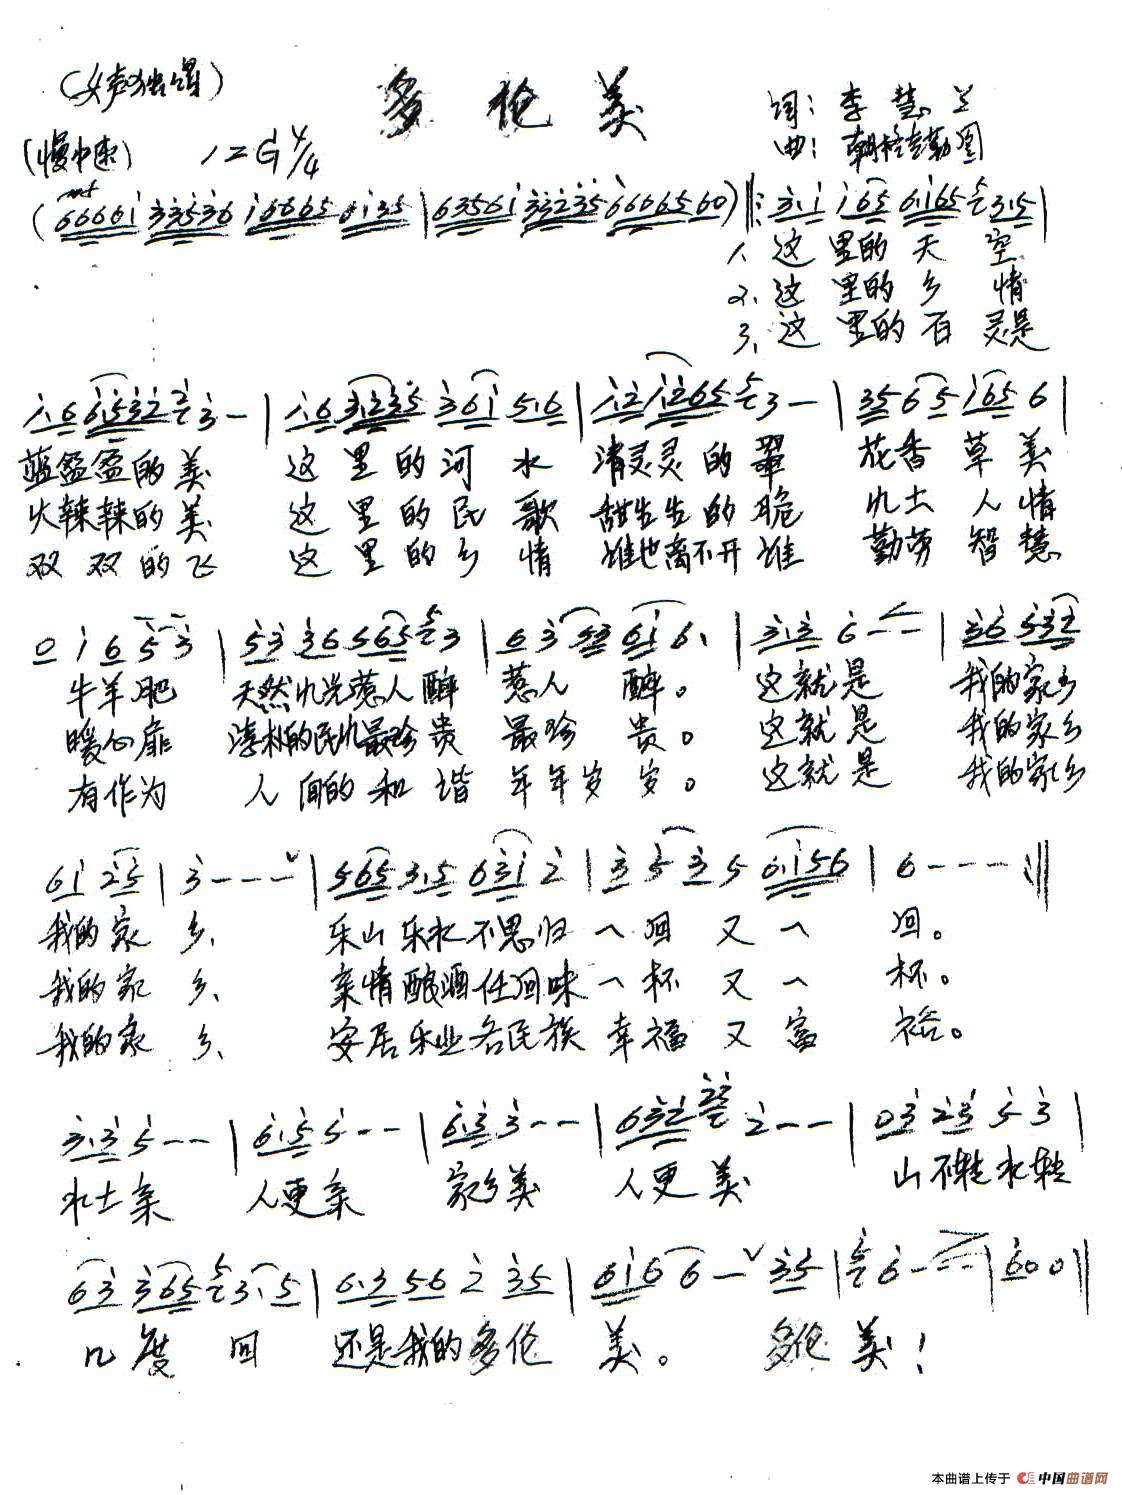 (女声独唱)
多伦美
词: 李慧兰
曲: 朝格
(慢中速) 1=G 4/4
mf
(66661 33536 16665 6135 | 63561 33235 6666560) ‖: 3.1 165 6165 3.5 |
1. 这里的天空
2. 这里的乡情
3. 这里的百灵是
1.6 61532 3- | 1.6 3235 361 5.6 | 1.2 1265 3- | 3565 165 6 |
蓝盈盈的美 这里的河水 清灵灵的翠 花香草美
火辣辣的美 这里的民歌 甜生生的脆 风土人情
双双的飞 这里的乡情 谁也离不开谁 勤劳智慧
0 1 6 5 3 | 53 36 5665 3 | 6 3 53 61 6. | 3.3 6-- | 36 532 |
牛羊肥 天然风光惹人醉 惹人醉。 这就是 我的家乡
暖心扉 淳朴的民风最珍贵 最珍贵。 这就是 我的家乡
有作为 人间的和谐年年岁岁。 这就是 我的家乡
61 25 | 3--- | 565 3.5 631 2 | 3 5 3 5 6.156 | 6--- :‖
我的家乡、 乐山乐水不思归 一回又一回。
我的家乡、 亲情酿酒任回味 一杯又一杯。
我的家乡、 安居乐业各民族 幸福又富裕。
3.3 5-- | 6.5 5-- | 6.3 3-- | 632 2-- | 03 23 5 3 |
水土亲 人更亲 家乡美 人更美 山不转水转
63 365 3.5 | 6.3 56 2 35 | 6166- 35 | 6-- | 600 ‖
几度回 还是我的多伦美。 多伦美!
本曲谱上传于 中国曲谱网